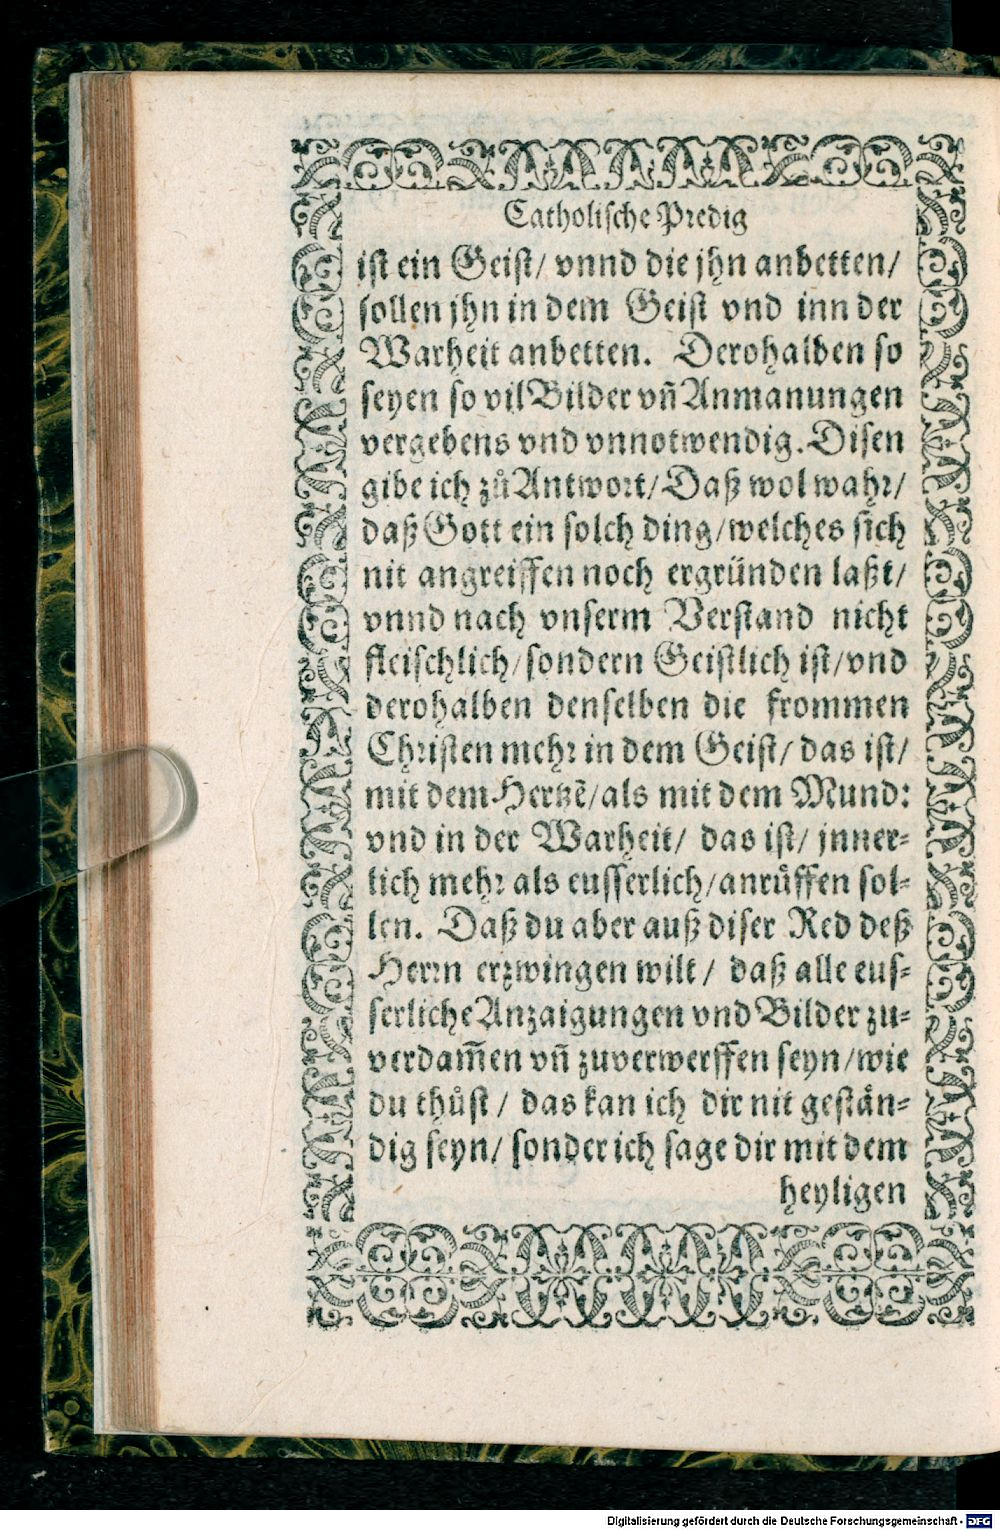 Catholische Predig
ist ein Geist/ vnnd die jhn anbetten/
sollen jhn in dem Geist vnd inn der
Warheit anbetten. Derohalben so
seyen so vil Bilder vñ Anmanungen
vergebens vnd vnnotwendig. Disen
gibe ich zů Antwort/ Daß wol wahr/
daß Gott ein solch ding/ welches sich
nit angreiffen noch ergründen laßt/
vnnd nach vnserm Verstand nicht
fleischlich/ sondern Geistlich ist/ vnd
derohalben denselben die frommen
Christen mehr in dem Geist/ das ist/
mit dem Hertzẽ/ als mit dem Mund:
vnd in der Warheit/ das ist/ jnner-
lich mehr als eusserlich/ anrüffen sol-
len. Daß du aber auß diser Red deß
Herrn erzwingen wilt/ daß alle eus-
serliche Anzaigungen vnd Bilder zu-
verdam̃en vñ zuverwerffen seyn/ wie
du thůst/ das kan ich dir nit gestän-
dig seyn/ sonder ich sage dir mit dem
heyligen
Digitalisierung gefördert durch die Deutsche Forschungsgemeinschaft - DFG